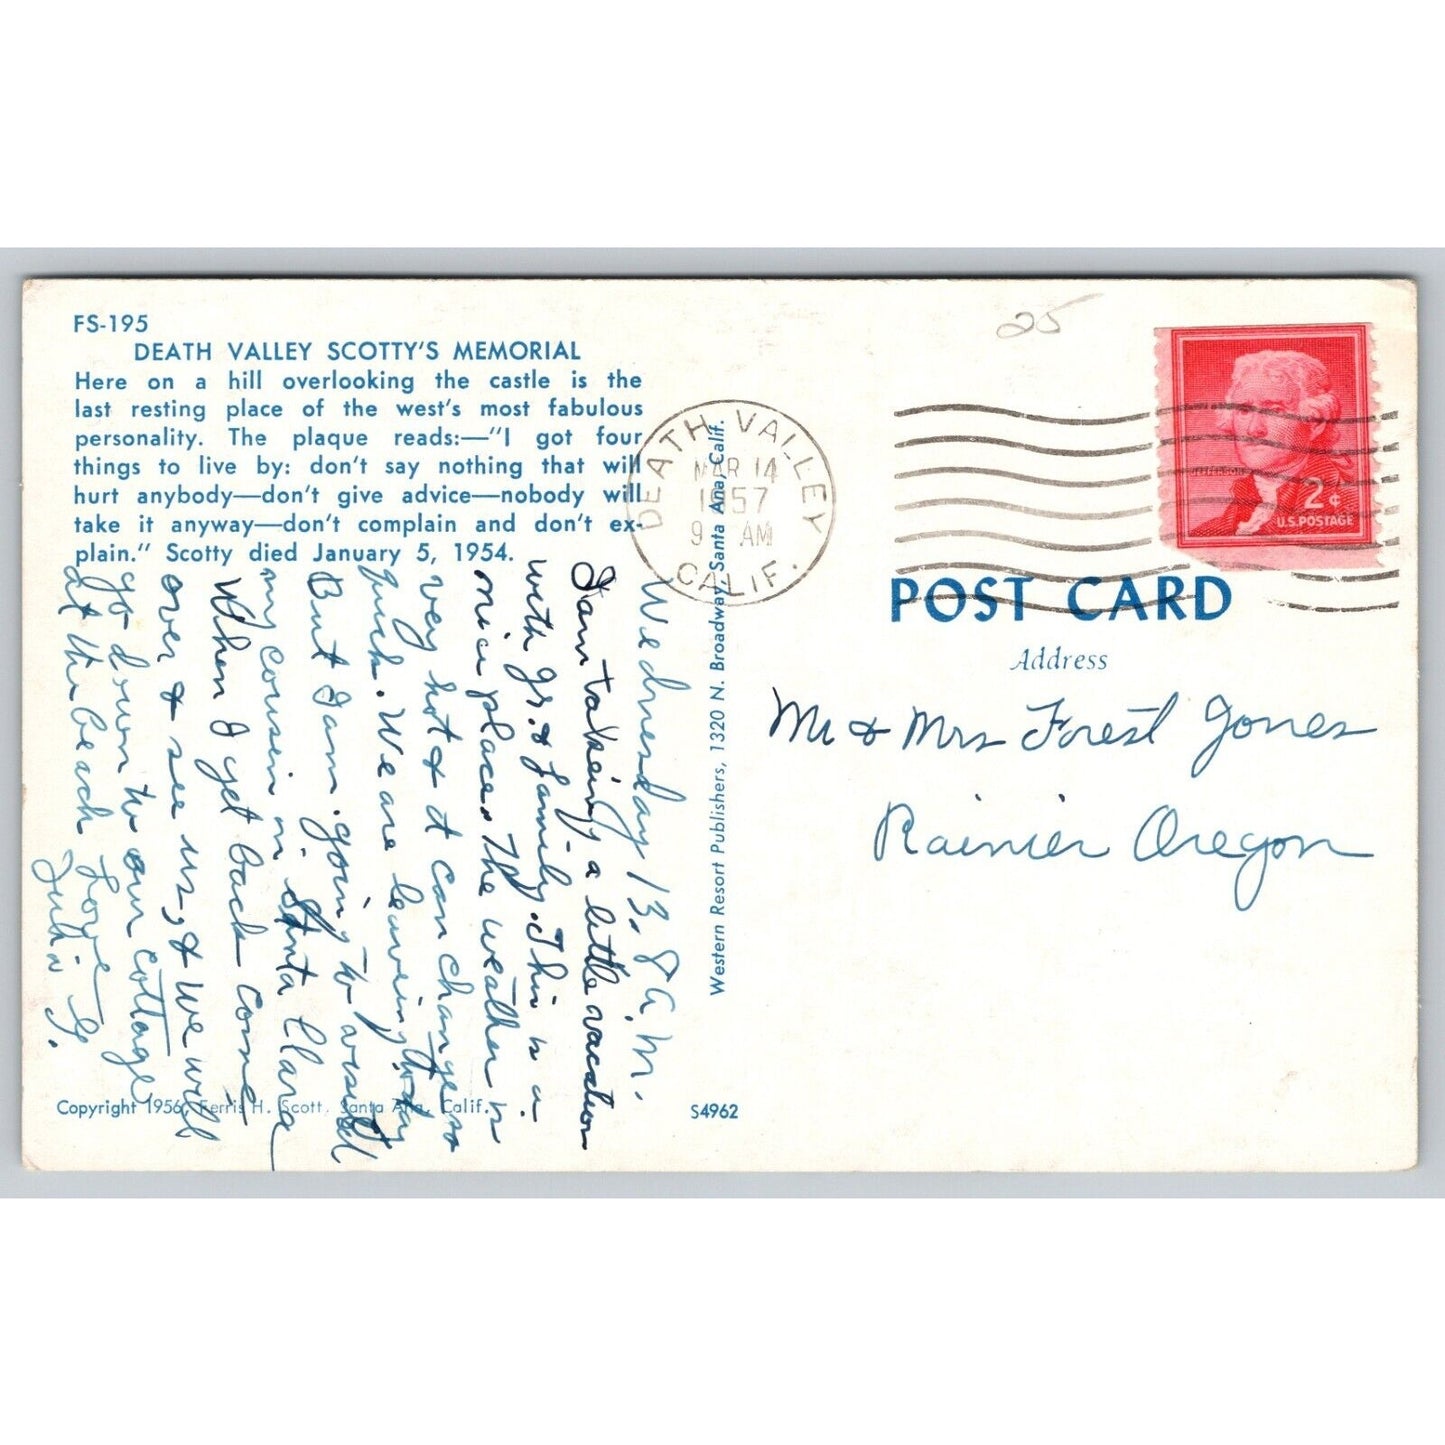 FS-195
DEATH VALLEY SCOTTY'S MEMORIAL
Here on a hill overlooking the castle is the
last resting place of the west's most fabulous
personality. The plaque reads:—"I got four
things to live by: don't say nothing that will
hurt anybody—don't give advice—nobody will
take it anyway—don't complain and don't ex-
plain." Scotty died January 5, 1954.
Wednesday 13, 8 a.m.
I am taking a little vacation
with Jr. & family. This is a
nice place. The weather is
very hot & it can change so
quick. We are leaving today
But I am going to visit
my cousin in Santa Clara
When I get back come
over & see us, & we will
go down to our cottage
at the beach Love
Julia G.
Copyright 1956, Ferris H. Scott, Santa Ana, Calif.
S4962
Western Resort Publishers, 1320 N. Broadway, Santa Ana, Calif.
DEATH VALLEY
MAR 14
1957
9 AM
CALIF.
25
JEFFERSON
2¢
U.S. POSTAGE
POST CARD
Address
Mr & Mrs Forest Jones
Rainier Oregon